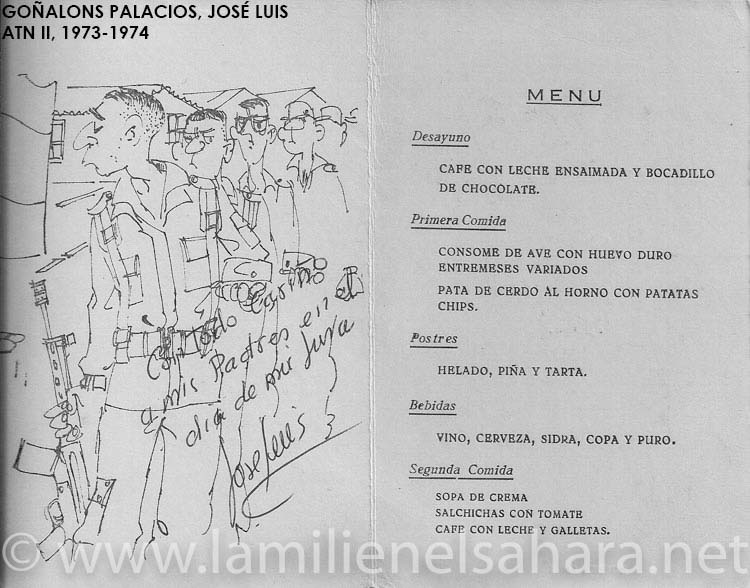 GOÑALONS PALACIOS, JOSÉ LUIS
ATN II, 1973-1974
Con todo Cariño
a mis Padres en el
dia de mi Jura
Jose Luis
MENU
Desayuno
CAFE CON LECHE ENSAIMADA Y BOCADILLO
DE CHOCOLATE.
Primera Comida
CONSOME DE AVE CON HUEVO DURO
ENTREMESES VARIADOS
PATA DE CERDO AL HORNO CON PATATAS
CHIPS.
Postres
HELADO, PIÑA Y TARTA.
Bebidas
VINO, CERVEZA, SIDRA, COPA Y PURO.
Segunda Comida
SOPA DE CREMA
SALCHICHAS CON TOMATE
CAFE CON LECHE Y GALLETAS.
© www.lamilienelsahara.net